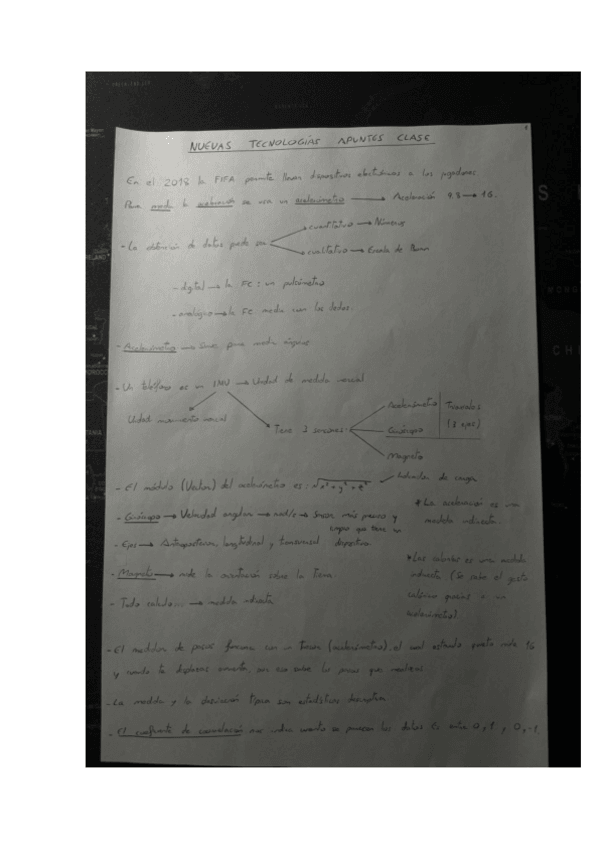 NUEVAS TECNOLOGÍAS APUNTES CLASE
En el 2018 la FIFA permite llevar dispositivos electrónicos a los jugadores.
Para medir la aceleración se usa un acelerómetro → Aceleración 9.8 → 1G.
- La obtención de datos puede ser
cuantitativo → Números
cualitativo → Escala de
- digital → la FC: un pulsómetro
- analógico → la FC medir con los dedos.
- Acelerómetro para medir
- Un teléfono es un IMU → Unidad de medida inercial
Unidad movimiento inercial
Tiene 3 sensores
Acelerómetro
Giróscopo
Magneto
Triaxiales
(3 ejes)
- El módulo (Vector) del acelerómetro es: √x²+y²+z²
Indicador de carga
- Giróscopo → Velocidad angular → rad/s → Sensor más y
que tiene un
dispositivo.
* La aceleración es una
medida indirecta.
- Ejes → Anteroposterior, longitudinal y transversal
- Magneto → mide la orientación sobre la tierra.
- Todo → medida indirecta
* Las calorías es una medida
indirecta (Se sabe el gasto
calórico gracias a un
acelerómetro)
- El medidor de pasos funciona con un (acelerómetro), el cual estando quieto mide 1G
y cuando te desplazas, por eso sabe los pasos que realizas.
- La media y la desviación típica son estadísticos descriptivos
- El coeficiente de correlación nos indica cuanto se parecen los datos. Es entre 0 y 1 y 0 y -1